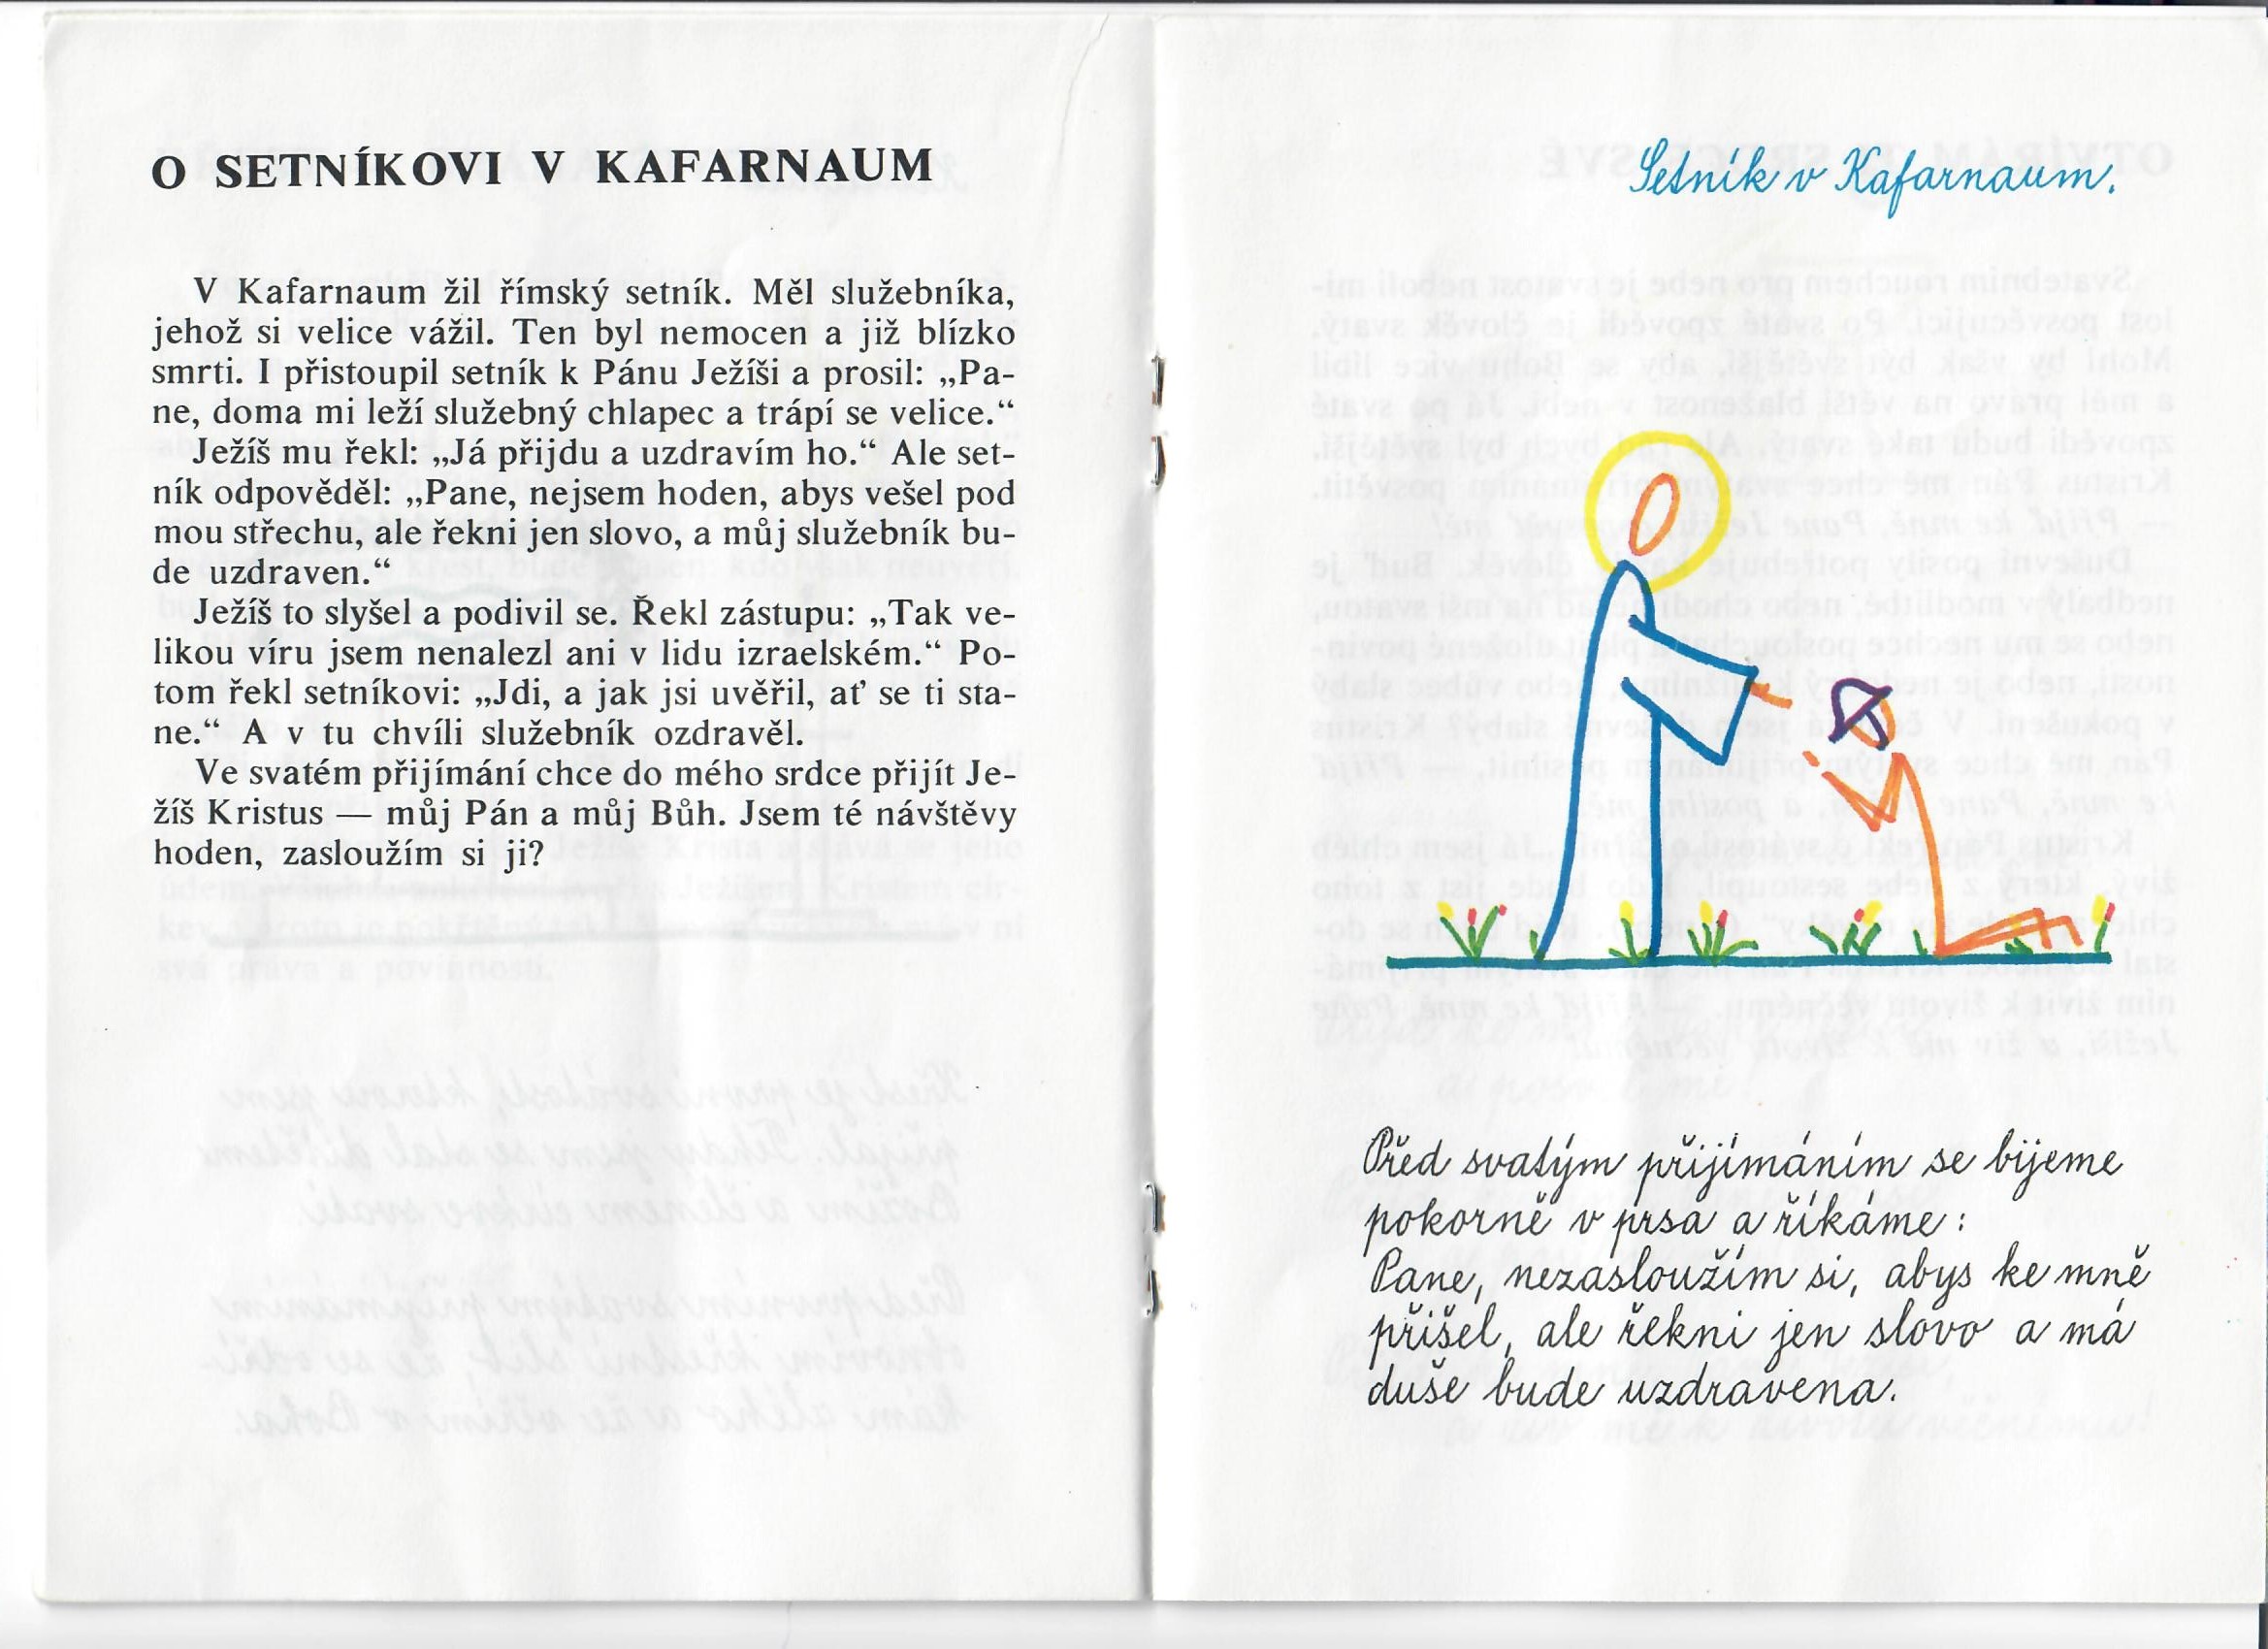 O SETNÍKOVI V KAFARNAUM
V Kafarnaum žil římský setník. Měl služebníka,
jehož si velice vážil. Ten byl nemocen a již blízko
smrti. I přistoupil setník k Pánu Ježíši a prosil: „Pa-
ne, doma mi leží služebný chlapec a trápí se velice.“
Ježíš mu řekl: „Já přijdu a uzdravím ho.“ Ale set-
ník odpověděl: „Pane, nejsem hoden, abys vešel pod
mou střechu, ale řekni jen slovo, a můj služebník bu-
de uzdraven.“
Ježíš to slyšel a podivil se. Řekl zástupu: „Tak ve-
likou víru jsem nenalezl ani v lidu izraelském.“ Po-
tom řekl setníkovi: „Jdi, a jak jsi uvěřil, ať se ti sta-
ne.“ A v tu chvíli služebník ozdravěl.
Ve svatém přijímání chce do mého srdce přijít Je-
žíš Kristus — můj Pán a můj Bůh. Jsem té návštěvy
hoden, zasloužím si ji?
Setník v Kafarnaum.
Před svatým přijímáním se bijeme
pokorně v prsa a říkáme:
Pane, nezasloužím si, abys ke mně
přišel, ale řekni jen slovo a má
duše bude uzdravena.